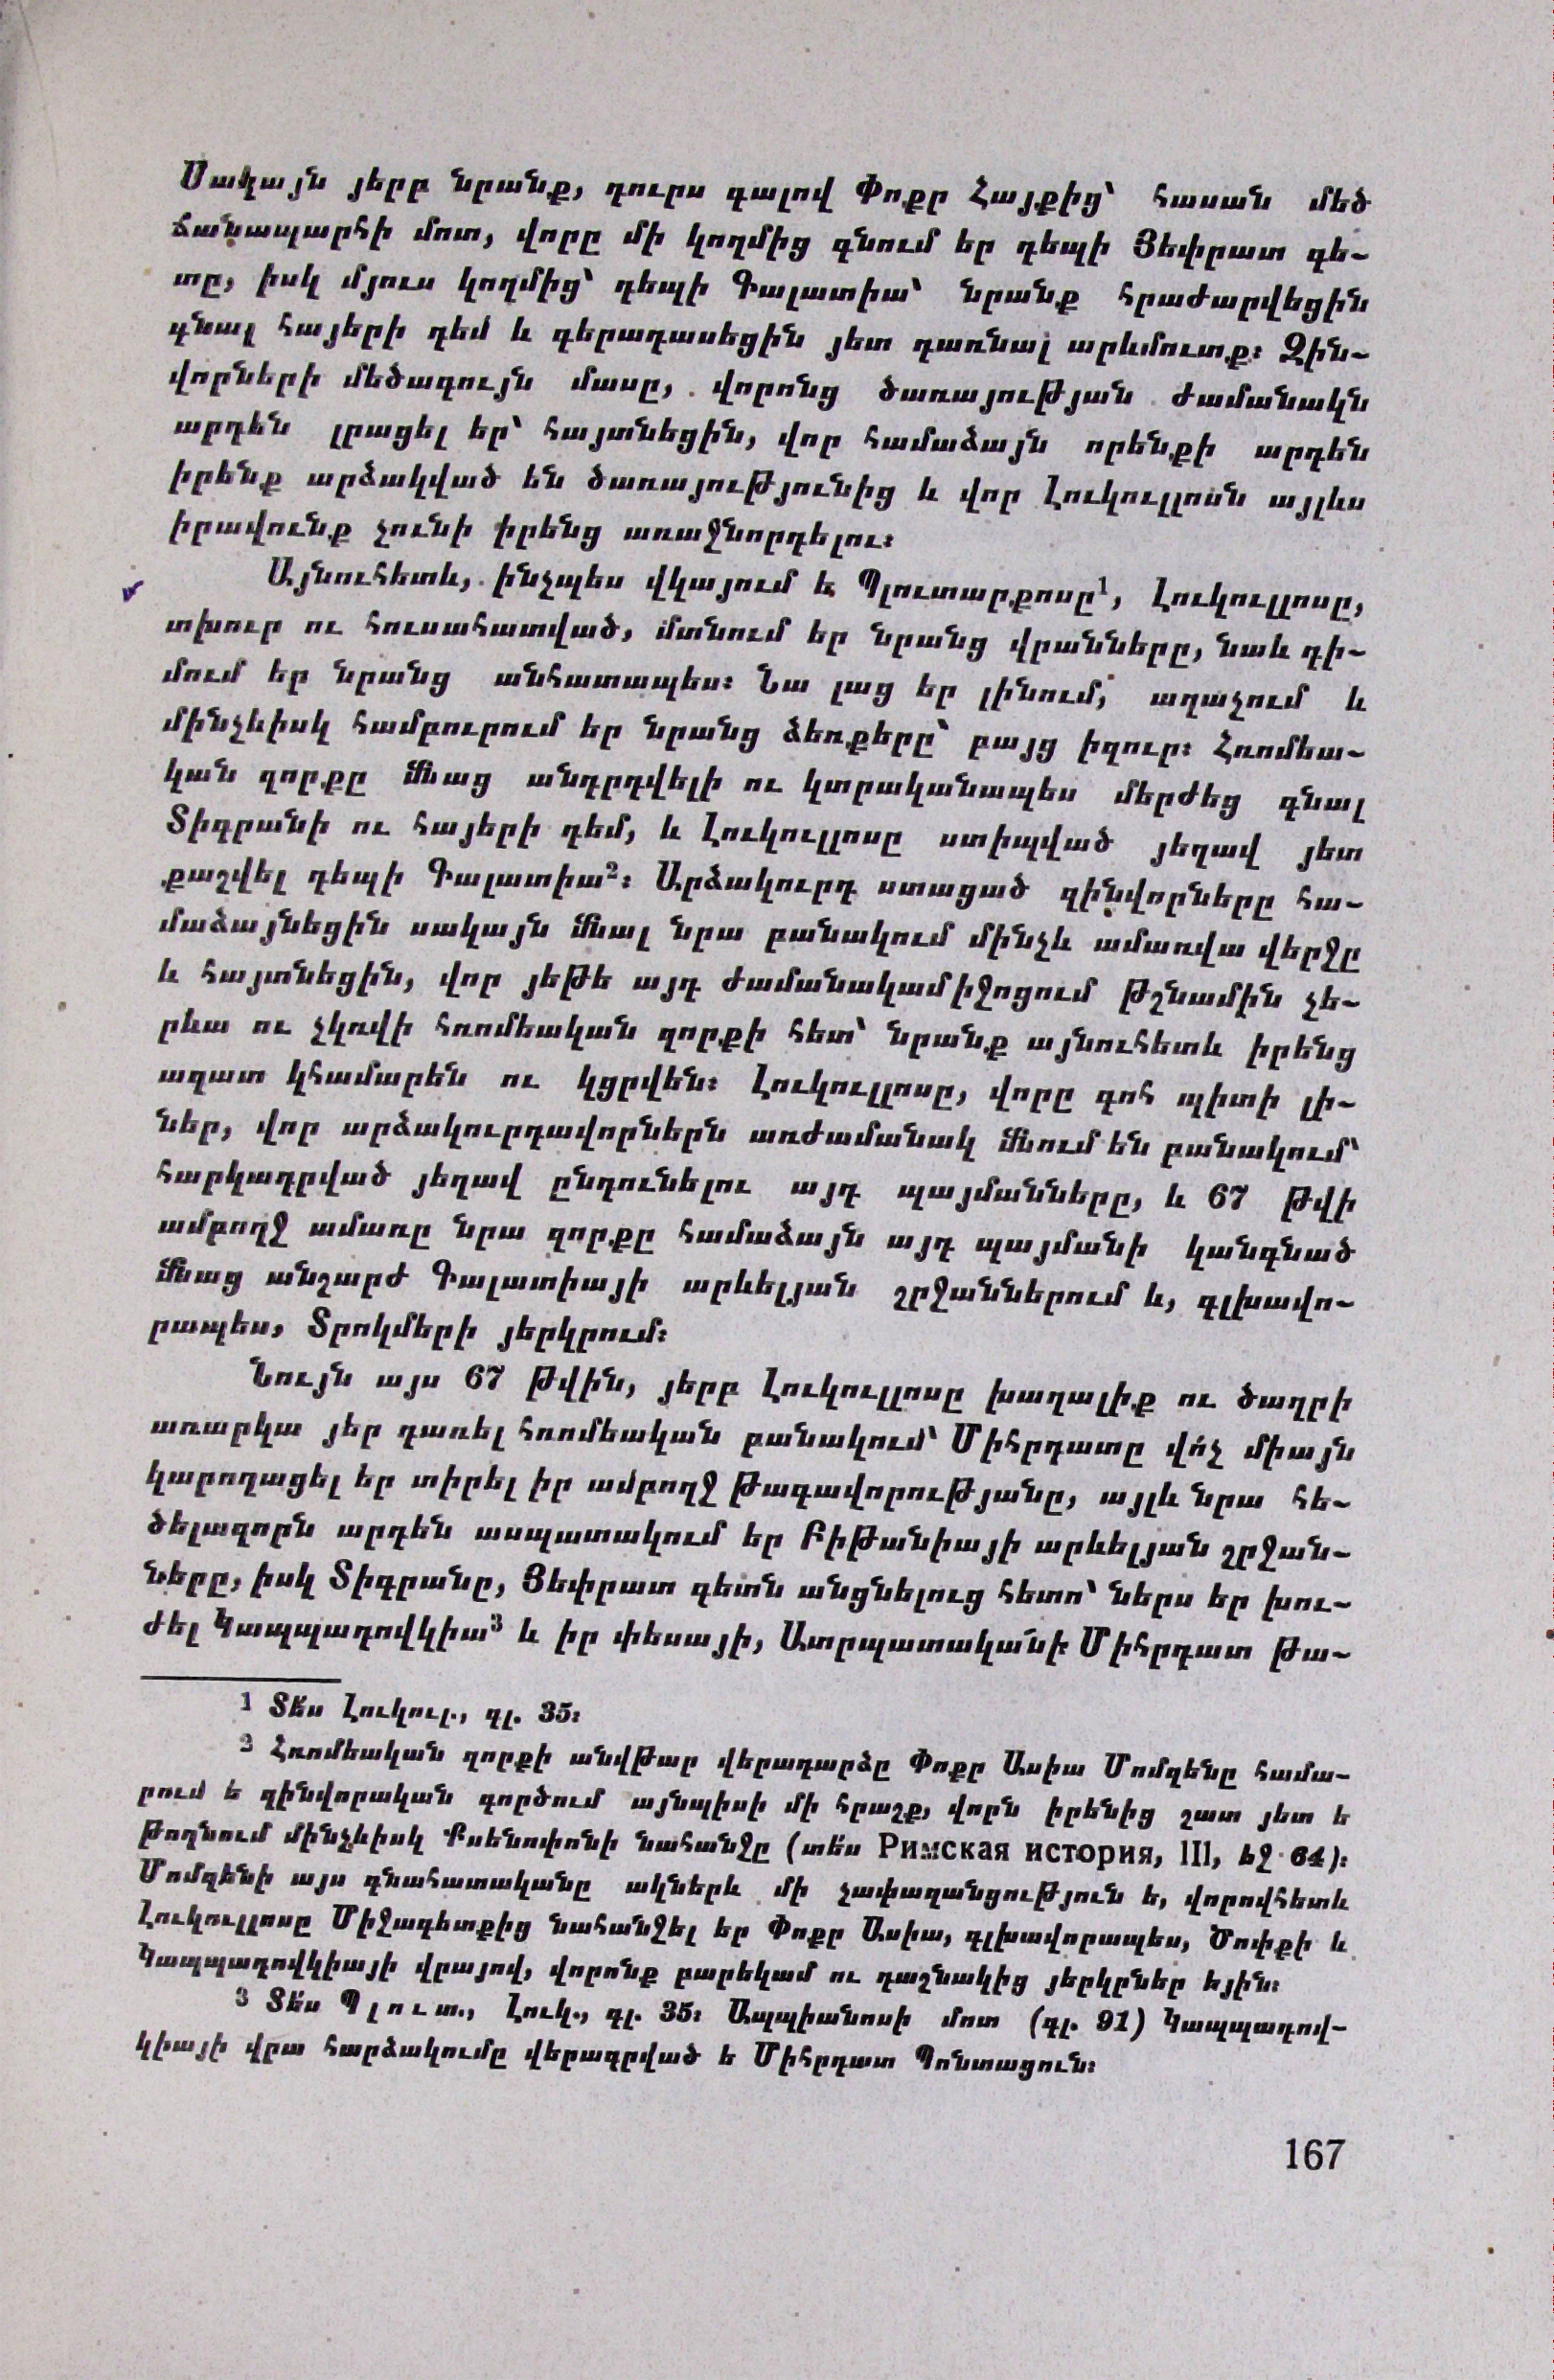 Սակայն յերբ նրանք, դուրս գալով Փոքր Հայքից՝ հասան մեծ
ճանապարհի մոտ, վորը մի կողմից գնում եր դեպի Յեփրատ գե-
տը, իսկ մյուս կողմից՝ դեպի Գալատիա՝ նրանք հրաժարվեցին
գնալ հայերի դեմ և գերադասեցին յետ դառնալ արևմուտք։ Զին-
վորների մեծագույն մասը, վորոնց ծառայության ժամանակն
արդեն լրացել եր՝ հայտնեցին, վոր համաձայն որենքի արդեն
իրենք արձակված են ծառայությունից և վոր Լուկուլլոսն այլևս
իրավունք չունի իրենց առաջնորդելու։
Այնուհետև, ինչպես վկայում է Պլուտարքոսը¹, Լուկուլլոսը,
տխուր ու հուսահատված, մտնում եր նրանց վրանները, նաև դի-
մում եր նրանց անհատապես։ Նա լաց եր լինում, աղաչում և
մինչևիսկ համբուրում եր նրանց ձեռքերը՝ բայց իզուր։ Հռոմեա-
կան զորքը մնաց անդրդվելի ու կտրականապես մերժեց գնալ
Տիգրանի ու հայերի դեմ, և Լուկուլլոսը ստիպված յեղավ յետ
քաշվել դեպի Գալատիա²։ Արձակուրդ ստացած զինվորները հա-
մաձայնեցին սակայն մնալ նրա բանակում մինչև ամառվա վերջը
և հայտնեցին, վոր յեթե այդ ժամանակամիջոցում թշնամին չե-
րևա ու չկռվի հռոմեական զորքի հետ՝ նրանք այնուհետև իրենց
ազատ կհամարեն ու կցրվեն։ Լուկուլլոսը, վորը գոհ պիտի լի-
ներ, վոր արձակուրդավորներն առժամանակ մնում են բանակում՝
հարկադրված յեղավ ընդունելու այդ պայմանները, և 67 թվի
ամբողջ ամառը նրա զորքը համաձայն այդ պայմանի կանգնած
մնաց անշարժ Գալատիայի արևելյան շրջաններում և, գլխավո-
րապես, Տրոկմերի յերկրում։
Նույն այս 67 թվին, յերբ Լուկուլլոսը խաղալիք ու ծաղրի
առարկա յեր դառել հռոմեական բանակում՝ Միհրդատը վո՛չ միայն
կարողացել եր տիրել իր ամբողջ թագավորությանը, այլև նրա հե-
ծելազորն արդեն ասպատակում եր Բիթանիայի արևելյան շրջան-
ները, իսկ Տիգրանը, Յեփրատ գետն անցնելուց հետո՝ ներս եր խու-
ժել Կապպադովկիա³ և իր փեսայի, Ատրպատականի Միհրդատ թա-
1 Տե՛ս Լուկուլ., գլ. 35։
2 Հռոմեական զորքի անվթար վերադարձը Փոքր Ասիա Մոմզենը համա-
րում ե զինվորական գործում այնպիսի մի հրաշք, վորն իրենից շատ յետ ե
թողնում մինչևիսկ Քսենոփոնի նահանջը (տե՛ս Римская история, III, եջ 64)։
Մոմզենի այս գնահատականը ակներև մի չափազանցություն ե, վորովհետև
Լուկուլլոսը Միջագետքից նահանջել եր Փոքր Ասիա, գլխավորապես, Ծոփքի և
Կապպադովկիայի վրայով, վորոնք բարեկամ ու դաշնակից յերկրներ եյին։
3 Տե՛ս Պլուտ., Լուկ., գլ. 35։ Ապպիանոսի մոտ (գլ. 91) Կապպադով-
կիայի վրա հարձակումը վերագրված ե Միհրդատ Պոնտացուն։
167